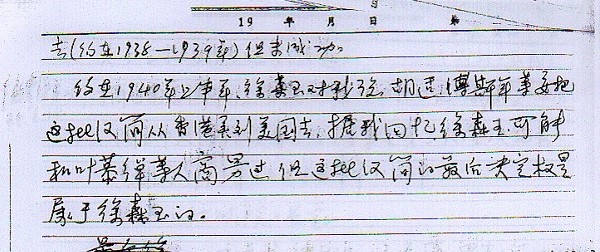 19 年 月 日 第
去(约在1938—1939年)但未成功。
约在1940年上半年,徐森玉对我说,胡适、傅斯年等要把
这批汉简从香港弄到美国去,据我回忆徐森玉可能
和叶恭绰等人商量过,但这批汉简的最后决定权是
属于徐森玉的。